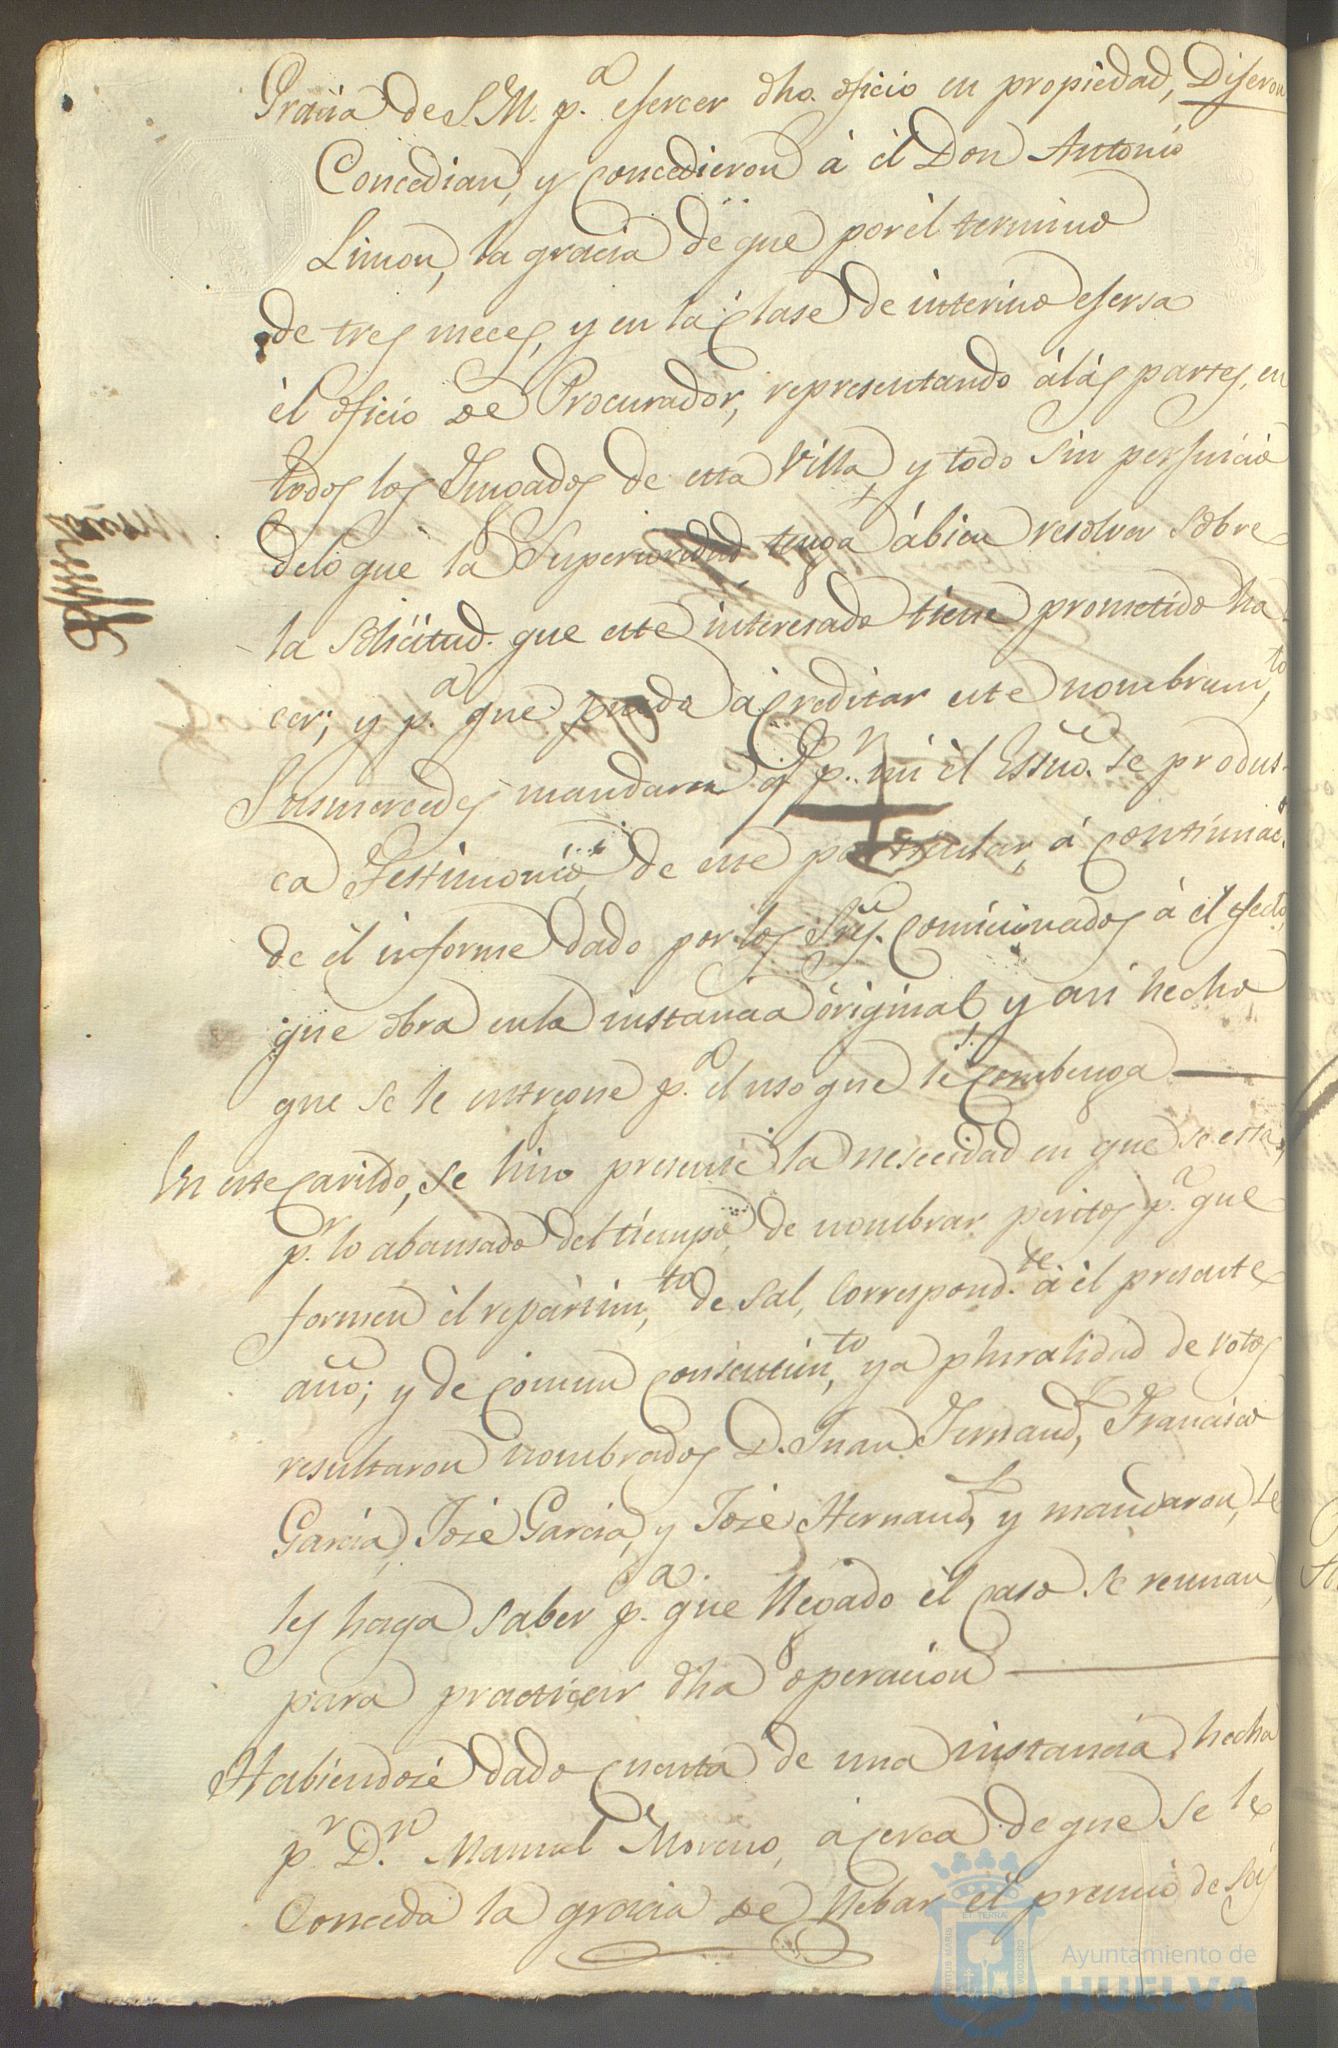 Gracia de S.M. p.ª eserser dho. oficio en propiedad, Diseron
Concedian, y concedieron à él Don Antonio
Limon, la gracia de que por él termino
de tres meces, y en la clase de interino esersa
él oficio de Procurador, representando á las partes, en
todos los Jusgados de esta Villa, y todo sin persuicio
de lo que la Superioridad tenga ábien resolver sobre
la solicitud que este interesado tiene prometido ha-
cer; y p.ª que pueda acreditar este nombram.to
Susmercedes mandaron q p.r mi él Essno. se produs-
ca Testimonio de este particular, á continuac.
de él informe dado por los Sres. comicionados á él efecto,
que obra en la instancia original, y asi hecho
que se le entregue p.ª el uso que le combenga
En este cavildo, se hiso presente la nesecidad en que se esta,
p.r lo abansado del tiempo de nombrar peritos p.ª que
formen él repartim.to de sal, correspond.te à él presente
año; y de comun consentim.to y a pluralidad de votos
resultaron nombrados D. Juan Fernand, Francisco
Garcia, José Garcia, y José Hernand, y mandaron, se
les haga saber p.ª que llegado él caso se reunan,
para practicar dha operacion
Habiendose dado cuenta de una instancia hecha
p.r D.n Manuel Moreno, acerca de que se le
Conceda la gracia de llebar él premio de seis
PORTUS MARIS
ET TERRÆ
CUSTODIA
Ayuntamiento de
HUELVA